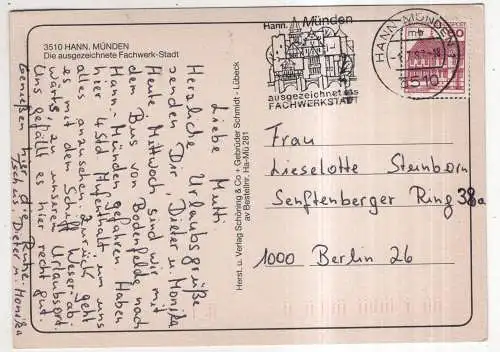 3510 HANN. MÜNDEN
Die ausgezeichnete Fachwerk-Stadt
Liebe Mutti.
Herzliche Urlaubsgrüße
senden Dir, Dieter u. Monika
Heute Mittwoch sind wir mit
dem Bus von Bodenfelde nach
Hann-Münden gefahren. Haben
hier 4 Std Aufenthalt um uns
alles anzusehen. Zurück geht
es mit dem Schiff Weserab-
wärts, zu unserem Urlaubsort.
Uns gefällt es hier recht gut.
Genießen hier die Ruhe.
Tschüs, Dieter u. Monika
Herst. u. Verlag Schöning & Co + Gebrüder Schmidt · Lübeck
av Bestellnr. Ha-Mü 281
Hann. Münden
ausgezeichnet als
FACHWERKSTADT
HANN. MÜNDEN
mb
3510
60
Frau
Lieselotte Steinborn
Senftenberger Ring 38a
1000 Berlin 26